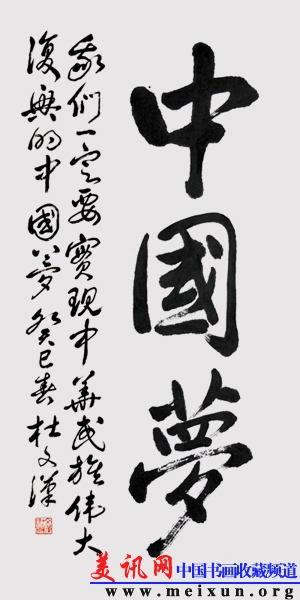 中國夢
我們一定要實現中華民族偉大
復興的中國夢 癸巳春 杜文漢
美讯网 中国书画收藏频道
www.meixun.org